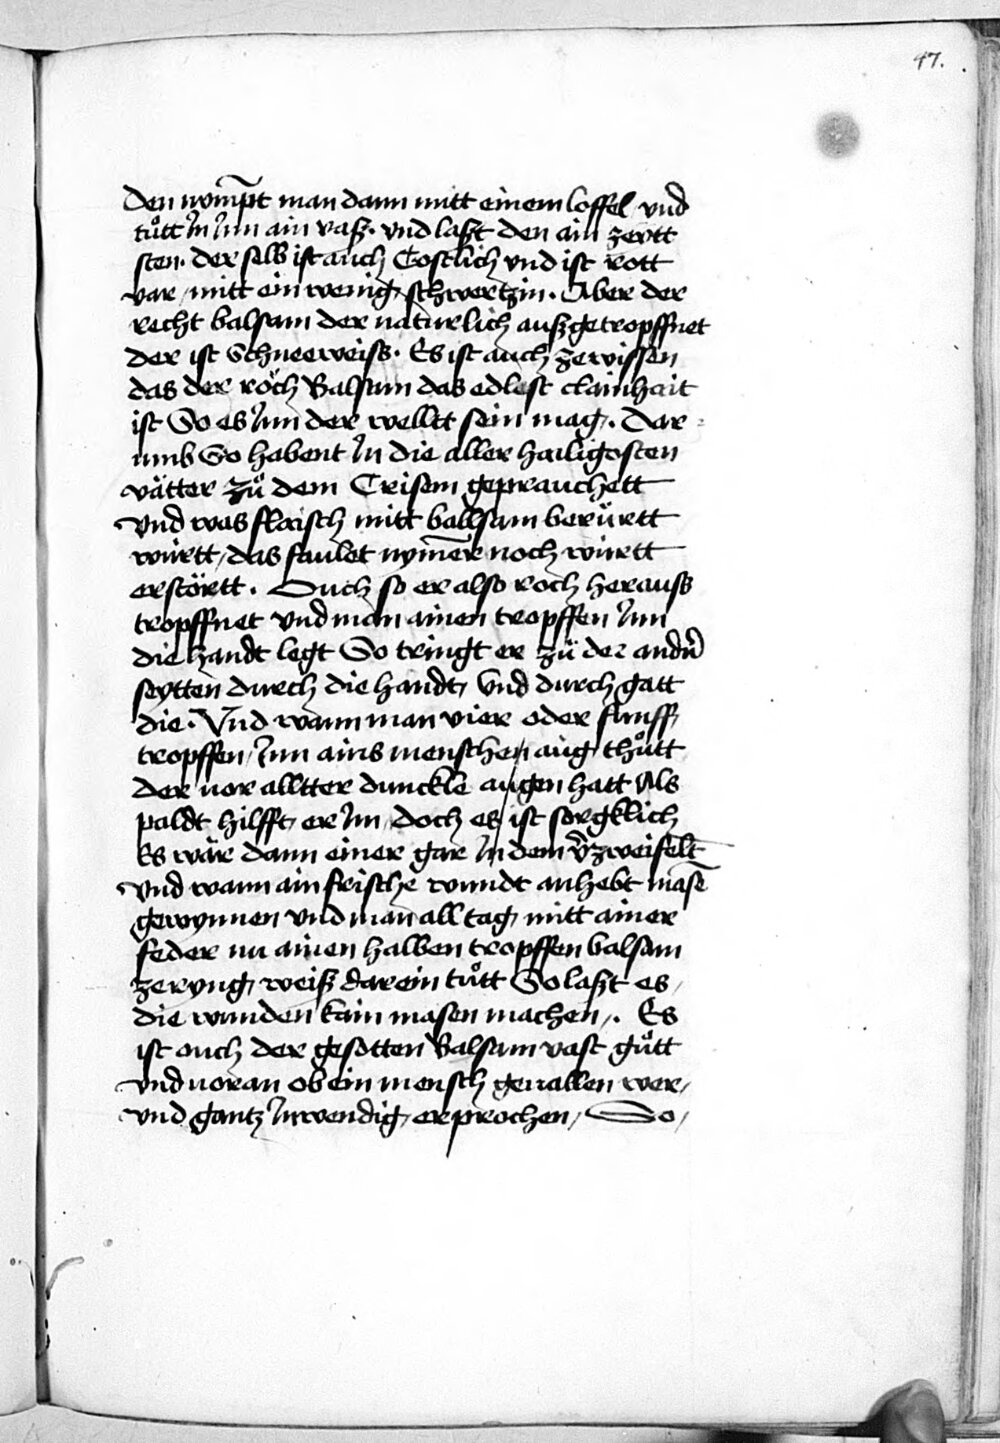 47.
den nympt man dann mitt einem loffel und
tůtt In Inn ain vasz. vnd laszt den ain zertt
sten. der selb ist auch Costlich vnd ist rott
var, mitt ein wenig, schwertzin. Aber der
recht balsam der naturlich auszgetropffnet
der ist Schneeweiss. Es ist auch zewissen
das der röch Balsam das edlest clainhait
ist So es Inn der welltt sein mag. Dar
umb So habent In die aller hailigosten
vätter zů dem Crisem geprauchett
vnd was flaisch mitt ballsam berürtt
württ, das faulet nymer noch württ
erstörtt. Ouch so er also roch herauss
tropffnet vnd man ainen tropffen Inn
die handt legt So tringt er zů der andern
seytten durch die handt, vnd durch gatt
die. Vnd wann man vier oder funff,
tropffen, Inn ains menschen aug thůtt
der vor alltter dunckle augen hatt Als
paldt hilfft, er Im, doch es ist sorgklich
Es wär dann einer gar In dem verzweifelt
vnd wann ain frische wundt anhebt masen
gewynnen vnd man all tag, mitt ainer
feder nu ainen halben tropffen balsam
zeryng, weisz darein tůtt So laszt es,
die wunden kain masen machen. Es
ist ouch der gesotten Balsam vast gůtt
vnd voran ob ein mensch geuallen wer,
vnd gantz Inwendig, erprochen, So,